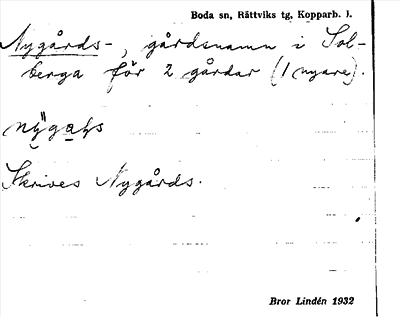 Boda sn, Rättviks tg, Kopparb. l.
Nygårds-, gårdsnamn i Sol-
berga för 2 gårdar (1 nyare).
Skrives Nygårds.
Bror Lindén 1932